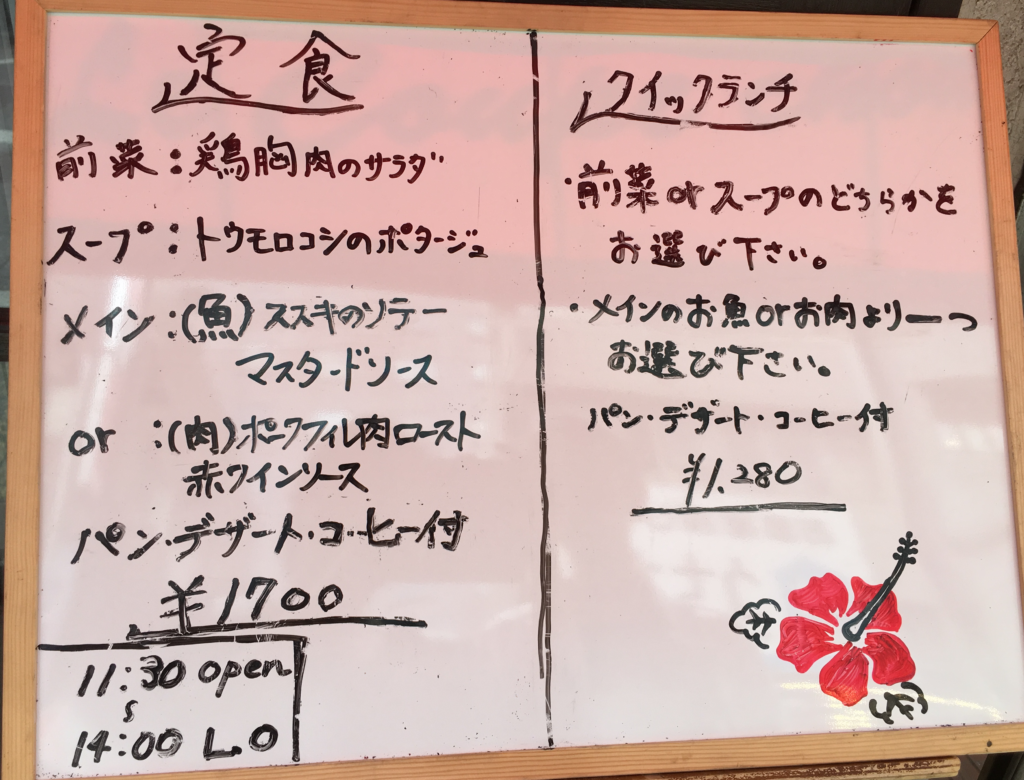 定食
前菜:鶏胸肉のサラダ
スープ:トウモロコシのポタージュ
メイン:(魚)ススキのソテー
マスタードソース
or :(肉)ポークフィレ肉ロースト
赤ワインソース
パン・デザート・コーヒー付
¥1700
11:30 open
~
14:00 L.O
クイックランチ
・前菜orスープのどちらかを
お選び下さい。
・メインのお魚orお肉より一つ
お選び下さい。
パン・デザート・コーヒー付
¥1.280